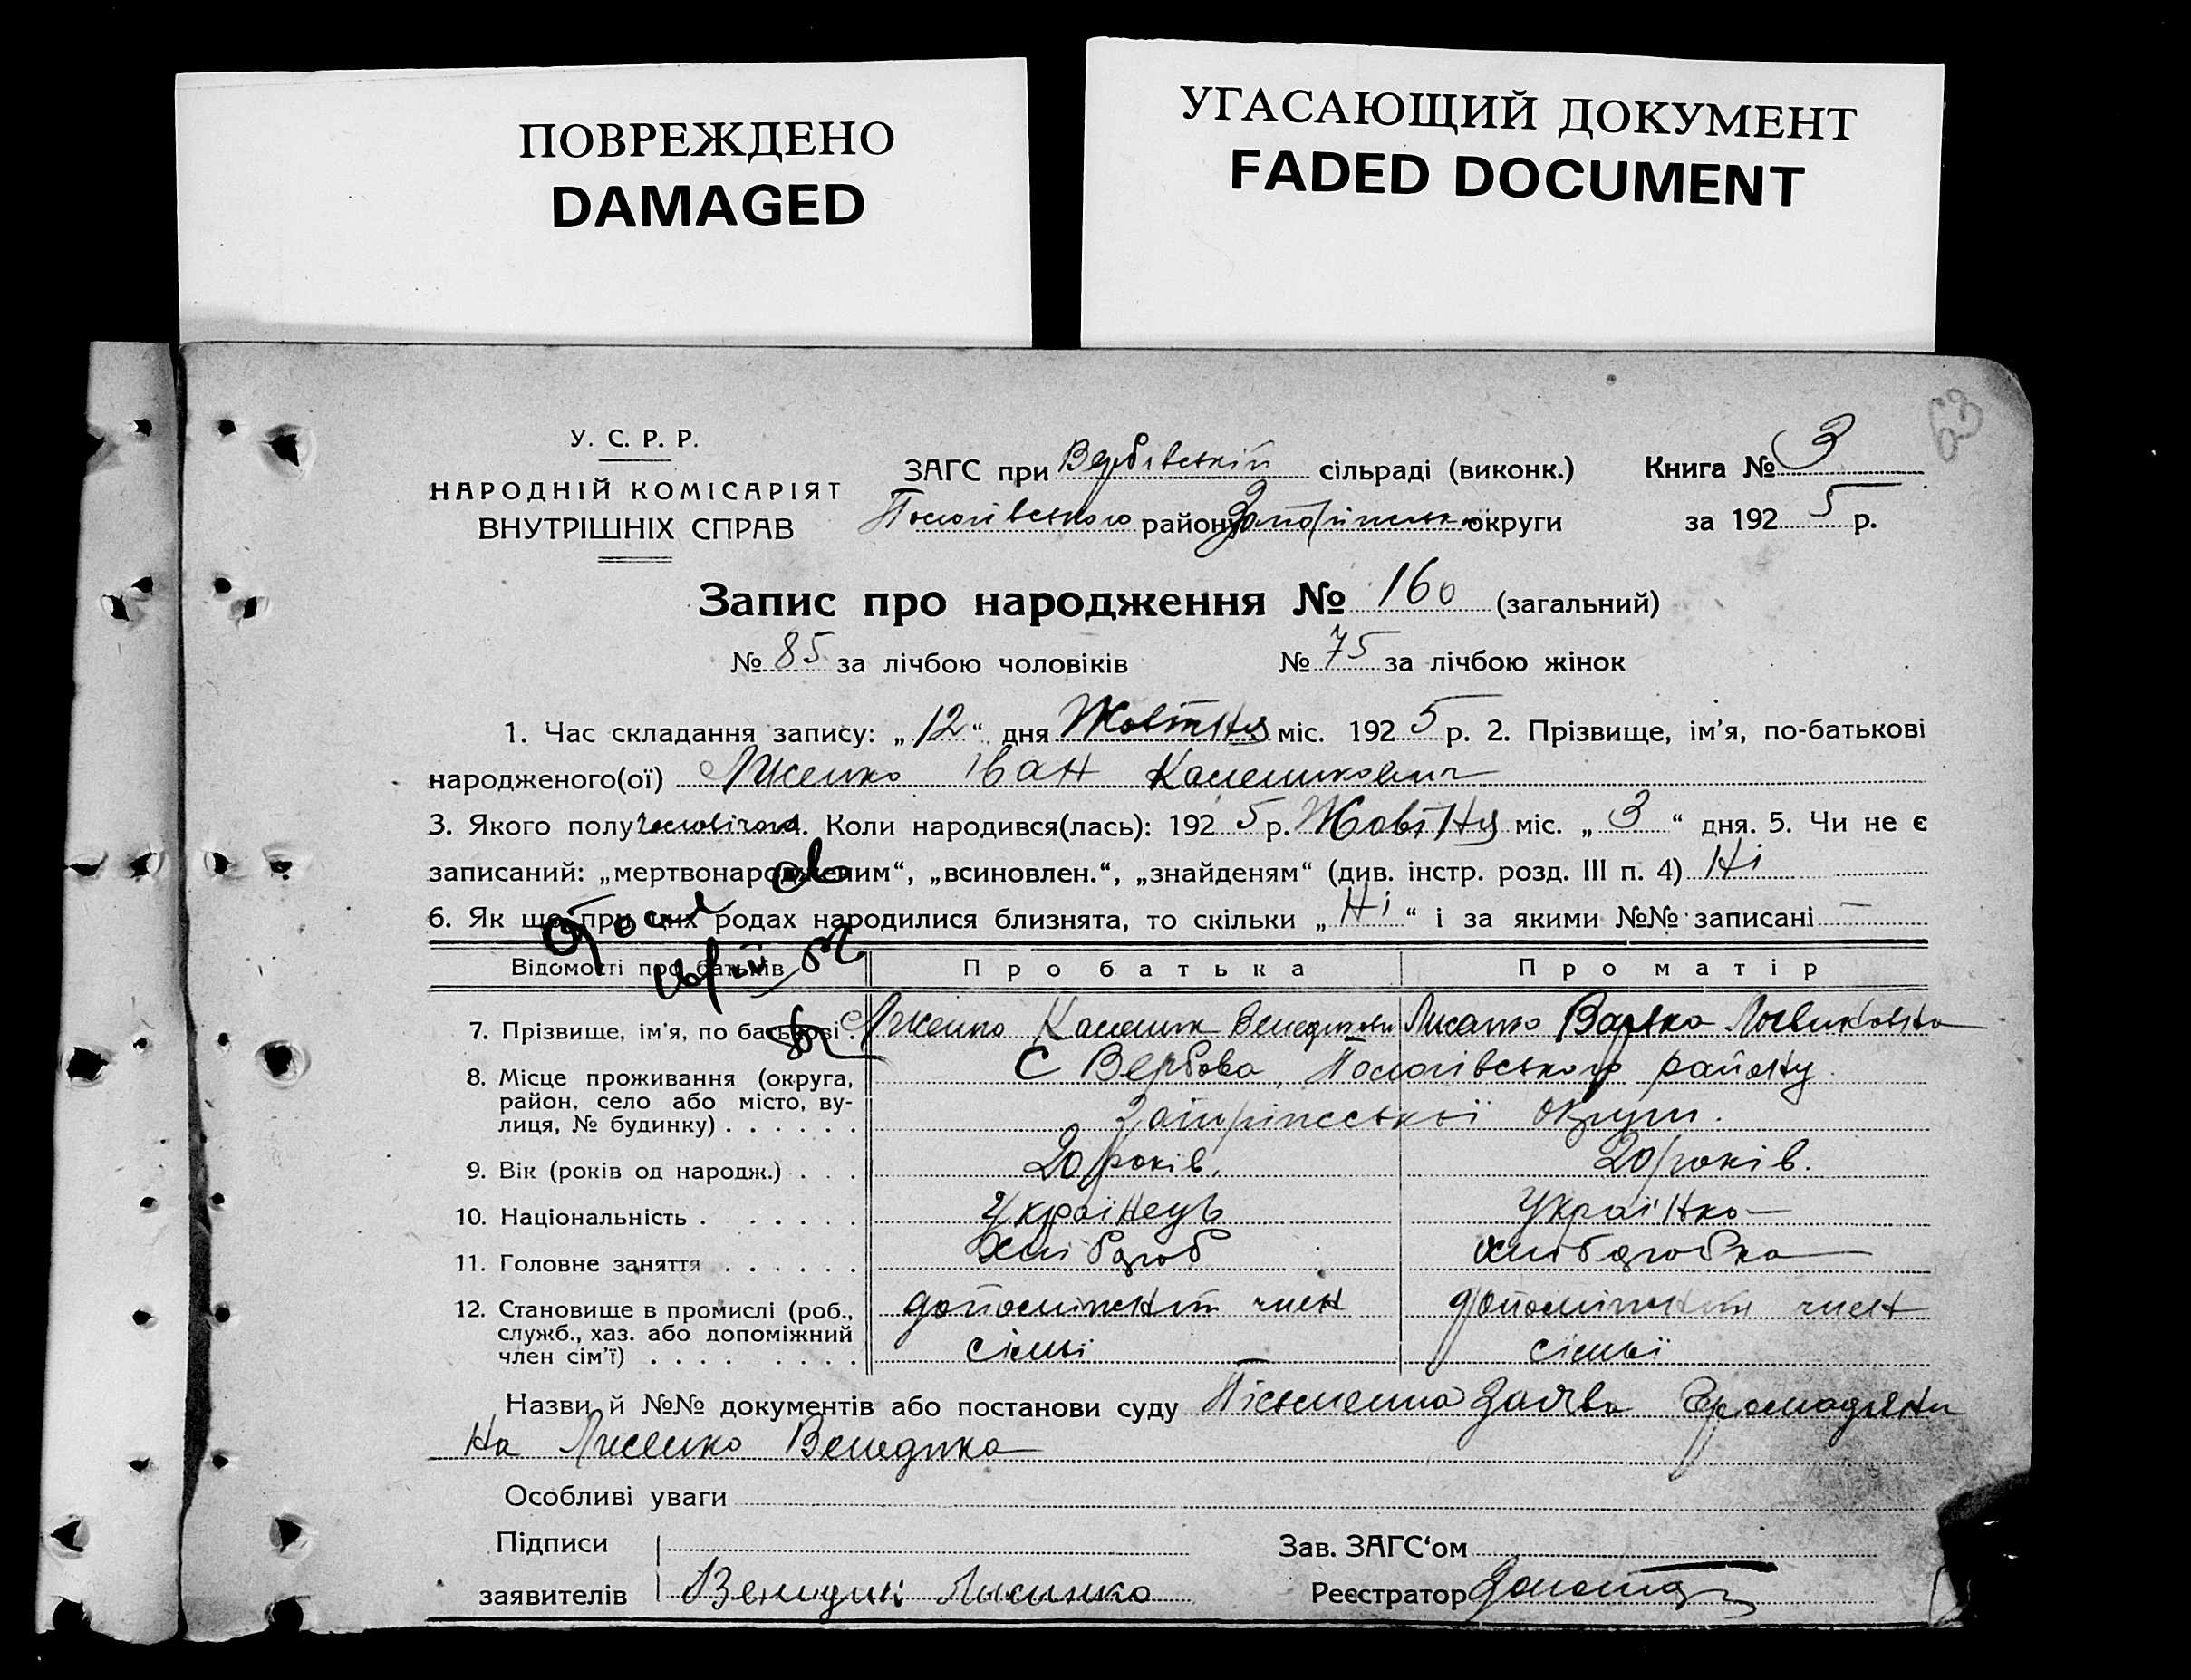 ПОВРЕЖДЕНО
DAMAGED
УГАСАЮЩИЙ ДОКУМЕНТ
FADED DOCUMENT
63
У. С. Р. Р.
НАРОДНІЙ КОМІСАРІЯТ
ВНУТРІШНІХ СПРАВ
ЗАГС при Вербівській сільраді (виконк.) Книга № 3
Пологівського району округи за 192 5 р.
Запис про народження № 160 (загальний)
№ 85 за лічбою чоловіків № 75 за лічбою жінок
1. Час складання запису: „ 12 “ дня Жовтня міс. 192 5 р. 2. Прізвище, ім'я, по-батькові
народженого(ої) Лисенко Іван
3. Якого полу . Коли народився(лась): 192 5 р. Жовтня міс. „ 3 “ дня. 5. Чи не є
записаний: „мертвонародженим“, „всиновлен.“, „знайденям“ (див. інстр. розд. III п. 4) Ні
6. Як що при цих родах народилися близнята, то скільки „ Ні “ і за якими №№ записані —
Відомості про батьків Про батька Про матір
7. Прізвище, ім'я, по батькові . Лисенко Варка
8. Місце проживання (округа, С Вербова, Пологівського району
район, село або місто, ву-
лиця, № будинку) . . . . . . округи.
9. Вік (років од народж.) . . . 20 років. 20 років.
10. Національність . . . . . . Українець Українка
11. Головне заняття . . . . . . Хлібороб хліборобка
12. Становище в промислі (роб., допоміжний член допоміжний член
служб., хаз. або допоміжний
член сім'ї) . . . . . . . . сімьї сімьї
Назви й №№ документів або постанови суду Пісьменна заява Громадяни
на Лисенко Венедика
Особливі уваги
Підписи Зав. ЗАГС‘ом
заявителів Реєстратор